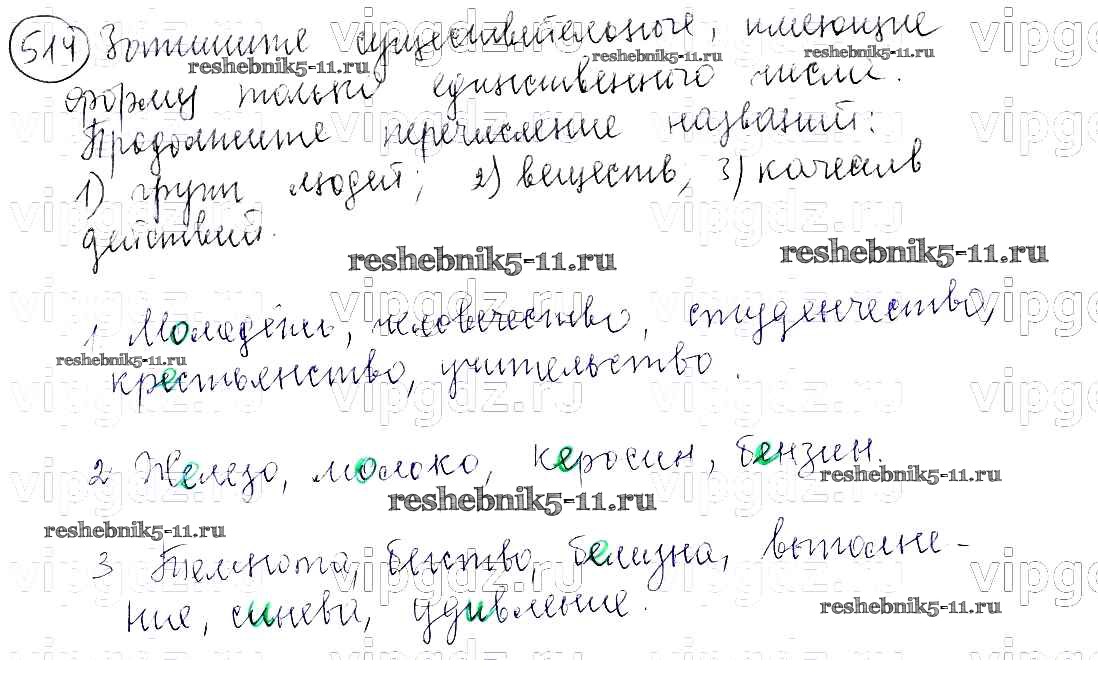 514 Запишите существительные, имеющие
форму только единственного числа.
Продолжите перечисление названий:
1) групп людей; 2) веществ, 3) качеств
действий.
1 Молодёжь, человечество, студенчество,
крестьянство, учительство.
2 Железо, молоко, керосин, бензин.
3 Темнота, бегство, белизна, выполне-
ние, синева, удивление.
reshebnik5-11.ru
reshebnik5-11.ru
reshebnik5-11.ru
reshebnik5-11.ru
reshebnik5-11.ru
reshebnik5-11.ru
reshebnik5-11.ru
reshebnik5-11.ru
reshebnik5-11.ru
reshebnik5-11.ru
vipgdz.ru